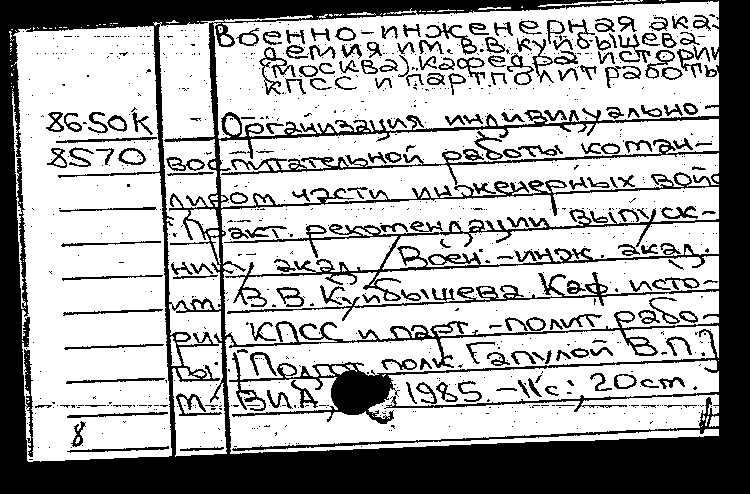 Военно-инженерная ака-
демия им. В.В. Куйбышева
(Москва). Кафедра истории
КПСС и партполитработы
86-50К Организация индивидуально-
8570 воспитательной работы коман-
диром части инженерных войс
: Практ. рекомендации выпуск-
нику акад. / Воен.-инж. акад.
им. В.В. Куйбышева. Каф. исто-
рии КПСС и парт.-полит. рабо-
ты: [Подгот. полк. Гапулой В.П.]
М.: ВИА, 1985. - 11с.; 20см.
8